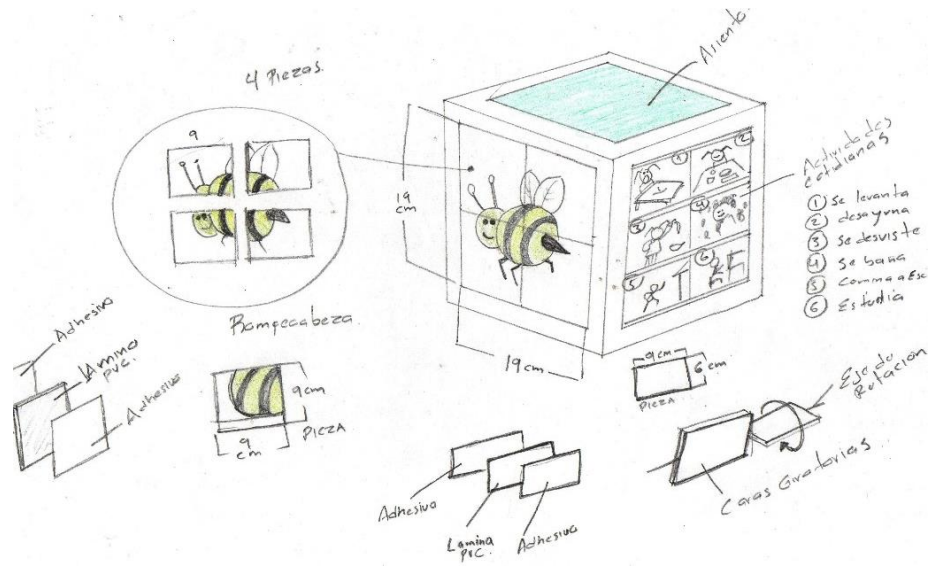 4 Piezas.
Asiento
9
19
cm
Actividades
Cotidianas
① Se levanta
② desayuna
③ Se desviste
④ Se baña
⑤
⑥ Estudia
Rompecabeza.
19 cm
Adhesivo
Lámina
PVC.
Adhesivo
9cm
PIEZA
9
cm
9cm
6 cm
PIEZA
Eje de
Rotación
Caras Giratorias
Adhesivo
Lamina
PVC.
Adhesivo
1
2
3
4
5
6